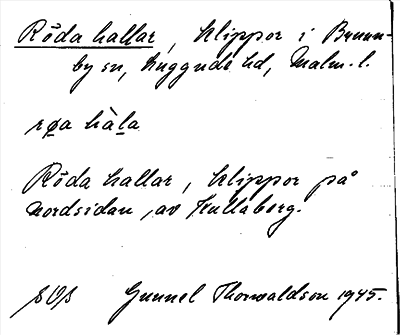 Röda hallar, klippor i Brunn-
by sn, Luggude hd, Malm. l.
røa hàla
Röda hallar, klippor på
nordsidan av Kullaberg.
Gunnel Thorwaldson 1945.